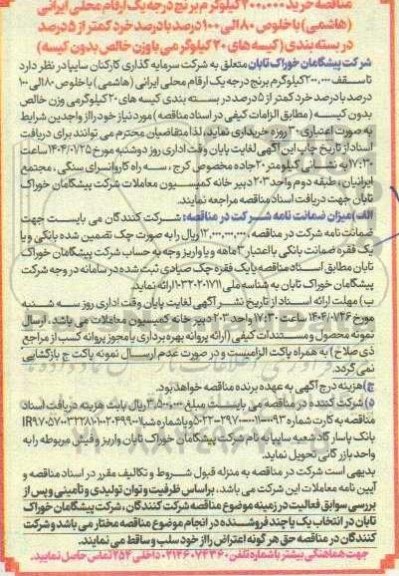 مناقصه خرید ۲۰۰،۰۰۰ کیلوگرم برنج درجه یک ارقام محلی ایرانی
(هاشمی) با خلوص ۸۰ الی ۱۰۰ درصد با درصد خرد کمتر از ۵ درصد
در بسته بندی (کیسه های ۲۰ کیلوگرمی با وزن خالص بدون کیسه)
شرکت پیشگامان خوراک تابان متعلق به شرکت سرمایه گذاری کارکنان سایپا در نظر دارد
تا سقف ۲۰۰،۰۰۰ کیلوگرم برنج درجه یک ارقام محلی ایرانی (هاشمی) با خلوص ۸۰ الی ۱۰۰
درصد با درصد خرد کمتر از ۵ درصد در بسته بندی کیسه های ۲۰ کیلوگرمی وزن خالص
بدون کیسه (مطابق الزامات کیفی در اسناد مناقصه) مورد نیاز خود را از واجدین شرایط
به صورت اعتباری ۳۰ روزه خریداری نماید، لذا متقاضیان محترم می توانند برای دریافت
اسناد از تاریخ چاپ این آگهی لغایت پایان وقت اداری روز دوشنبه مورخ ۱۴۰۴/۰۷/۲۵ ساعت
۱۷:۳۰ به نشانی کیلومتر ۲۰ جاده مخصوص کرج، سه راه کاروانسرای سنگی، مجتمع
ایرانیان، طبقه دوم واحد ۲۰۳ دبیر خانه کمیسیون معاملات شرکت پیشگامان خوراک
تابان جهت دریافت اسناد مناقصه مراجعه نمایند.
الف) میزان ضمانت نامه شرکت در مناقصه: شرکت کنندگان می بایست جهت
ضمانت نامه شرکت در مناقصه، ۱۲،۰۰۰،۰۰۰،۰۰۰ ریال را به صورت چک تضمین شده بانکی و یا
یک فقره ضمانت بانکی با اعتبار ۳ ماهه و یا واریز وجه به حساب شرکت پیشگامان خوراک
تابان مطابق اسناد مناقصه یا یک فقره چک صیادی ثبت شده در سامانه در وجه شرکت
پیشگامان خوراک تابان به شناسه ملی ارائه نماید.
ب) مهلت ارائه اسناد از تاریخ نشر آگهی لغایت پایان وقت اداری روز سه شنبه
مورخ ۱۴۰۴/۰۷/۲۶ ساعت ۱۷:۳۰ واحد ۲۰۳ دبیر خانه کمیسیون معاملات می باشد، ارسال
نمونه محصول و مستندات کیفی (ارائه پروانه بهره برداری یا مجوز پروانه کسب از مراجع
ذی صلاح) به همراه پاکت الزامیست و در صورت عدم ارسال نمونه پاکت ج بازگشایی
نمی گردد.
ج) هزینه درج آگهی به عهده برنده مناقصه خواهد بود.
د) شرکت کننده در مناقصه می بایست مبلغ ۳،۵۰۰،۰۰۰ ریال بابت هزینه دریافت اسناد
مناقصه به کارت شماره و یا شماره شبا
بانک پاسارگاد شعبه سایپا به نام شرکت پیشگامان خوراک تابان واریز و فیش مربوطه را به
واحد بازرگانی تحویل نماید.
بدیهی است شرکت در مناقصه به منزله قبول شروط و تکالیف مقرر در اسناد مناقصه و
آیین نامه معاملات این شرکت می باشد، براساس ظرفیت و توان تولیدی و تامینی و پس از
بررسی سوابق فعالیت در زمینه موضوع مناقصه شرکت کنندگان، شرکت پیشگامان خوراک
تابان در انتخاب یک یا چند فروشنده در انجام موضوع مناقصه مختار می باشد و شرکت
کنندگان در مناقصه حق هرگونه اعتراض را از خود سلب و ساقط می نمایند.
جهت هماهنگی بیشتر با شماره تلفن ۰۲۱۴۶۰۷۴۳۶۰ داخلی ۲۵۴ تماس حاصل نمایید.